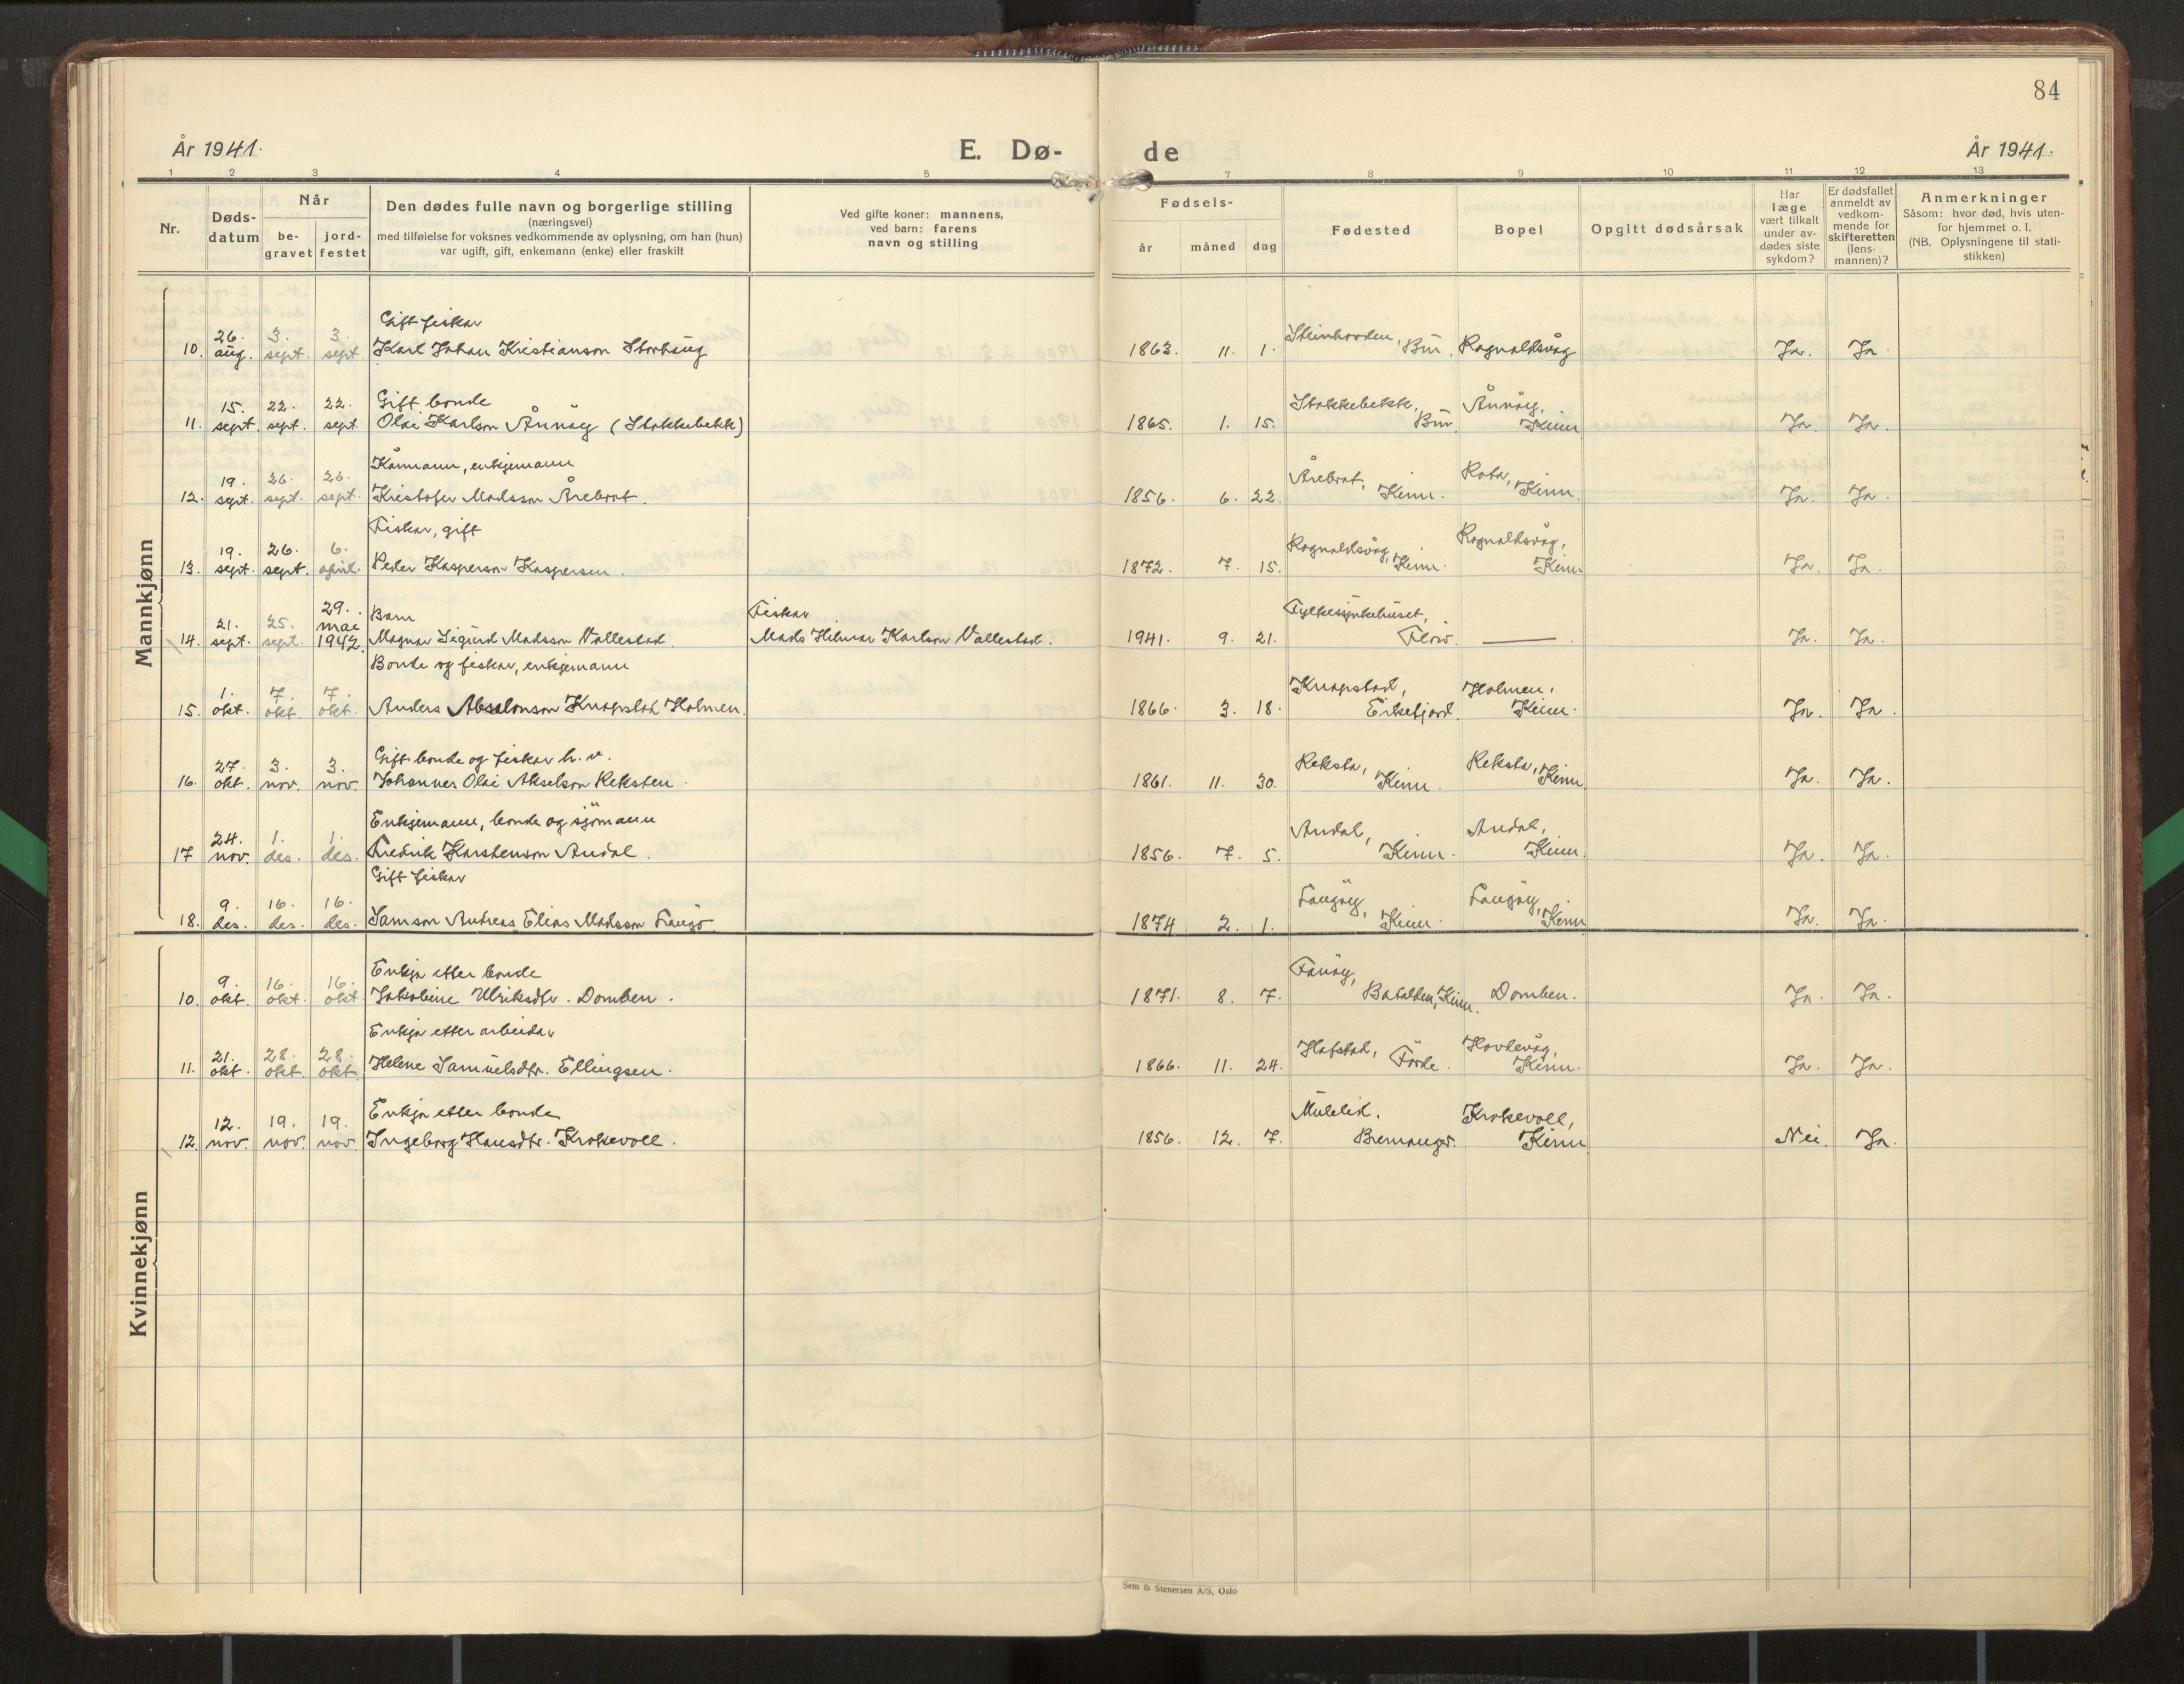 84
År 1941.
E. Dø-
de
År 1941.
1 2 3 4 5 7 8 9 10 11 12 13
Nr.
Døds-
datum
Når
be-
gravet
jord-
festet
Den dødes fulle navn og borgerlige stilling
(næringsvei)
med tilføielse for voksnes vedkommende av oplysning, om han (hun)
var ugift, gift, enkemann (enke) eller fraskilt
Ved gifte koner: mannens,
ved barn: farens
navn og stilling
Fødsels-
år måned dag
Fødested
Bopel
Opgitt dødsårsak
Har
læge
vært tilkalt
under av-
dødes siste
sykdom?
Er dødsfallet
anmeldt av
vedkom-
mende for
skifteretten
(lens-
mannen)?
Anmerkninger
Såsom: hvor død, hvis uten-
for hjemmet o. l.
(NB. Oplysningene til stati-
stikken)
Mannkjønn
26. 3. 3. Gift fiskar
10. aug. sept. sept. Karl Johan Kristianson Storhaug 1863. 11. 1. Bru. Rognaldsvåg Ja. Ja.
15. 22. 22. Gift bonde Stokkebekk, Ånnøy,
11. sept. sept. sept. Olai Karlson Ånnøy (Stokkebekk) 1865. 1. 15. Bru. Kinn Ja. Ja.
19. 26. 26. Kårmann, enkjemann Årebrot, Rota,
12. sept. sept. sept. Kristofer Madsson Årebrot. 1856. 6. 22. Kinn. Kinn. Ja. Ja.
19. 26. 6. Fiskar, gift Rognaldsvåg, Rognaldsvåg,
13. sept. sept. april. Peder Kasperson Kaspersen. 1872. 7. 15. Kinn. Kinn Ja. Ja.
21. 25. 29. mai Barn Fiskar Fylkessjukehuset,
14. sept. sept. 1942. Magnar Sigurd Madsson Vallestad. Mads Hilmar Karlson Vallestad. 1941. 9. 21. Florø. — Ja. Ja.
1. 7. 7. Bonde og fiskar, enkjemann Knapstad, Holmen,
15. okt. okt. okt. Anders Absalonson Knapstad Holmen. 1866. 3. 18. Eikefjord. Kinn. Ja. Ja.
27. 3. 3. Gift bonde og fiskar h. v. Reksta, Reksta,
16. okt. nov. nov. Johannes Olai Akselson Reksten. 1861. 11. 30. Kinn. Kinn. Ja. Ja.
24. 1. 1. Enkjemann, bonde og sjømann Andal, Andal,
17 nov. des. des. Fredrik Karstenson Andal. 1856. 7. 5. Kinn. Kinn. Ja. Ja.
9. 16. 16. Gift fiskar
18. des. des. des. Samson Andreas Elias Madsson 1874 2. 1. Kinn. Kinn Ja. Ja.
Kvinnekjønn
9. 16. 16. Enkja etter bonde Fanøy,
10. okt. okt. okt Jakobine Ulriksdtr. Domben. 1871. 8. 7. Batalden, Kinn. Domben. Ja. Ja.
21. 28. 28. Enkja etter arbeidar Hafstad, Havkevåg,
11. okt. okt. okt. Helene Samuelsdtr. Ellingsen. 1866. 11. 24. Førde. Kinn. Ja. Ja.
12. 19. 19. Enkja etter bonde Krokevoll,
12. nov. nov. nov. Ingeborg Hansdtr. Krokevoll. 1856. 12. 7. Bremanger. Kinn Nei. Ja.
Sem & Stenersen A/S, Oslo